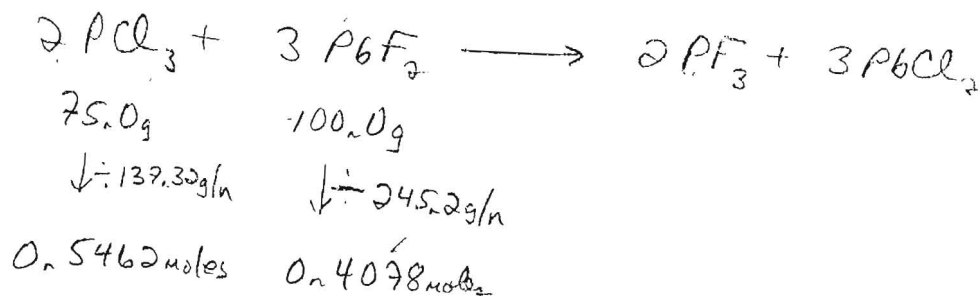 2 PCl₃ + 3 PbF₂ ⟶ 2 PF₃ + 3 PbCl₂
75.0g 100.0g
↓÷137.32g/n ↓÷245.2g/n
0.5462moles 0.4078moles